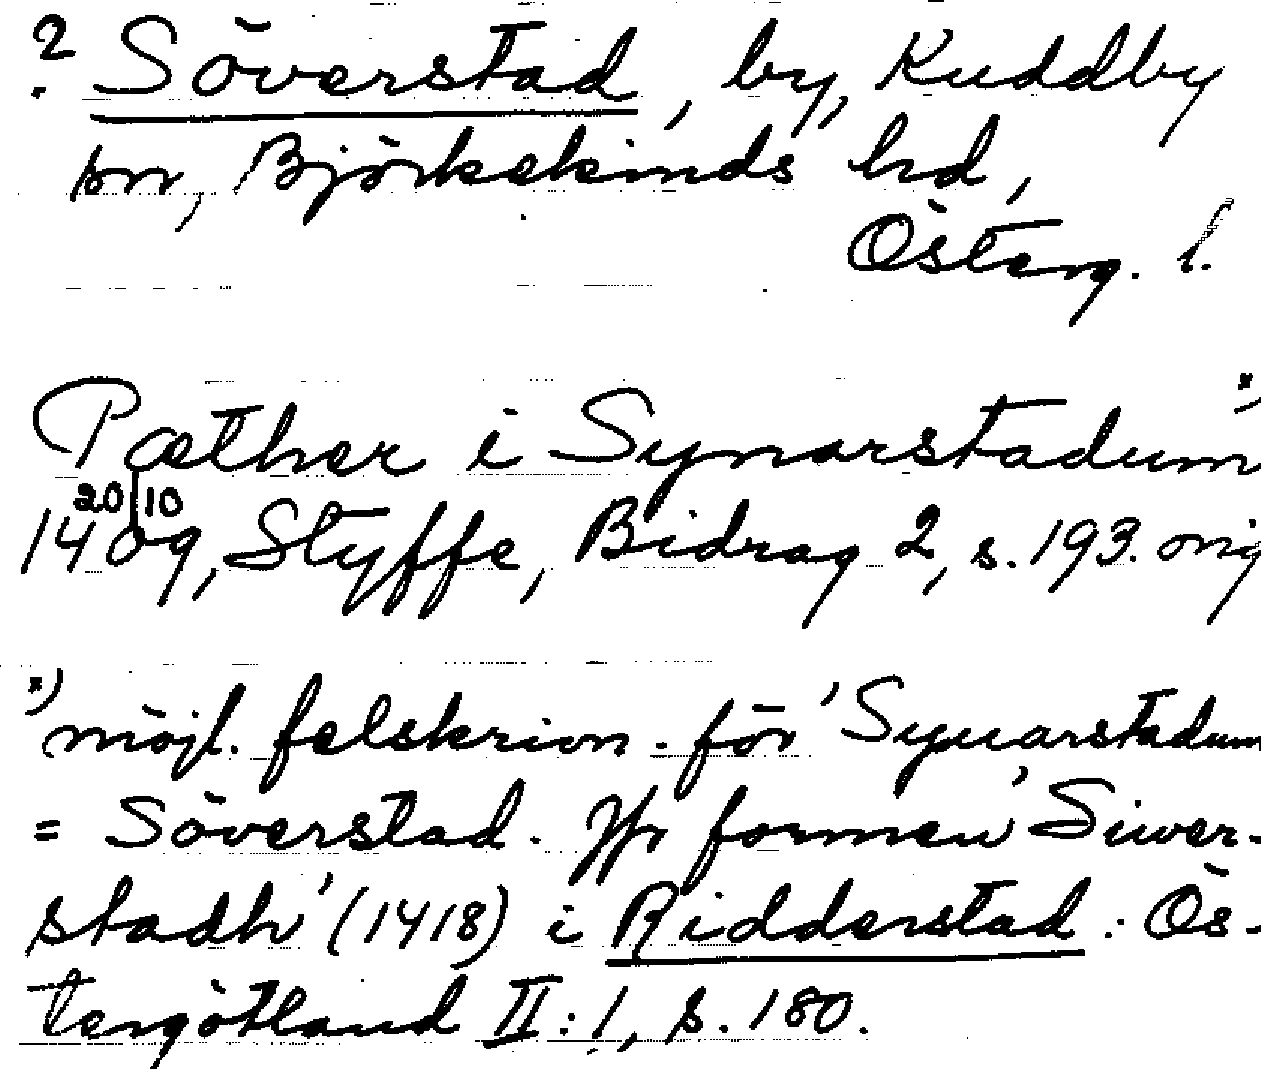 ? Söverstad, by, Kuddby
sn, Björkekinds hd,
Österg. l.
Pæther i Synarstadum x)
20/10
1409, Styffe, Bidrag 2, s. 193. orig
x) möjl. felskrivn. för 'Syuarstadum'
= Söverstad. Jfr formen 'Siwer-
stadh' (1418) i Ridderstad: Ös-
tergötland II:1, s. 180.